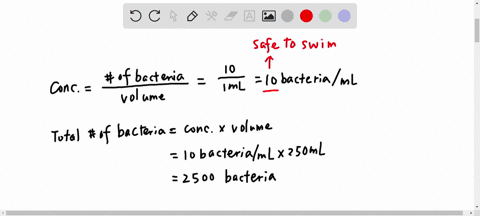 safe to swim
Conc. = # of bacteria / volume = 10 / 1mL = 10 bacteria/mL
Total # of bacteria = conc. x volume
= 10 bacteria/mL x 250mL
= 2500 bacteria